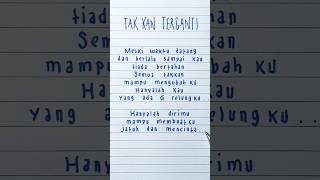 TAK KAN TERGANTI
Meski waktu datang
dan berlalu sampai kau
tiada bertahan
Semua takkan
mampu mengubah ku
Hanyalah kau
yang ada di relung ku
Hanyalah dirimu
mampu membuat ku
jatuh dan mencinta..